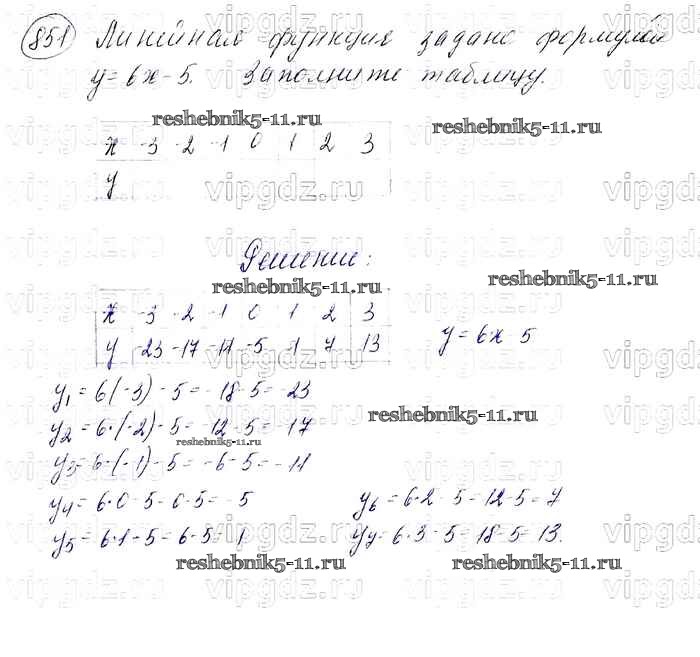 851 Линейная функция задана формулой
y = 6x - 5. Заполните таблицу.
reshebnik5-11.ru
reshebnik5-11.ru
x -3 -2 -1 0 1 2 3
y
Решение:
reshebnik5-11.ru
reshebnik5-11.ru
x -3 -2 -1 0 1 2 3
y -23 -17 -11 -5 1 7 13
y = 6x - 5
y1 = 6·(-3) - 5 = -18-5 = -23
reshebnik5-11.ru
y2 = 6·(-2) - 5 = -12-5 = -17
reshebnik5-11.ru
y3 = 6·(-1) - 5 = -6-5 = -11
y4 = 6·0-5 = 0-5 = -5
y6 = 6·2-5 = 12-5 = 7
y5 = 6·1-5 = 6-5 = 1
y7 = 6·3-5 = 18-5 = 13.
reshebnik5-11.ru
reshebnik5-11.ru
vipgdz.ru vipgdz.ru vipgdz.ru vipgdz.ru